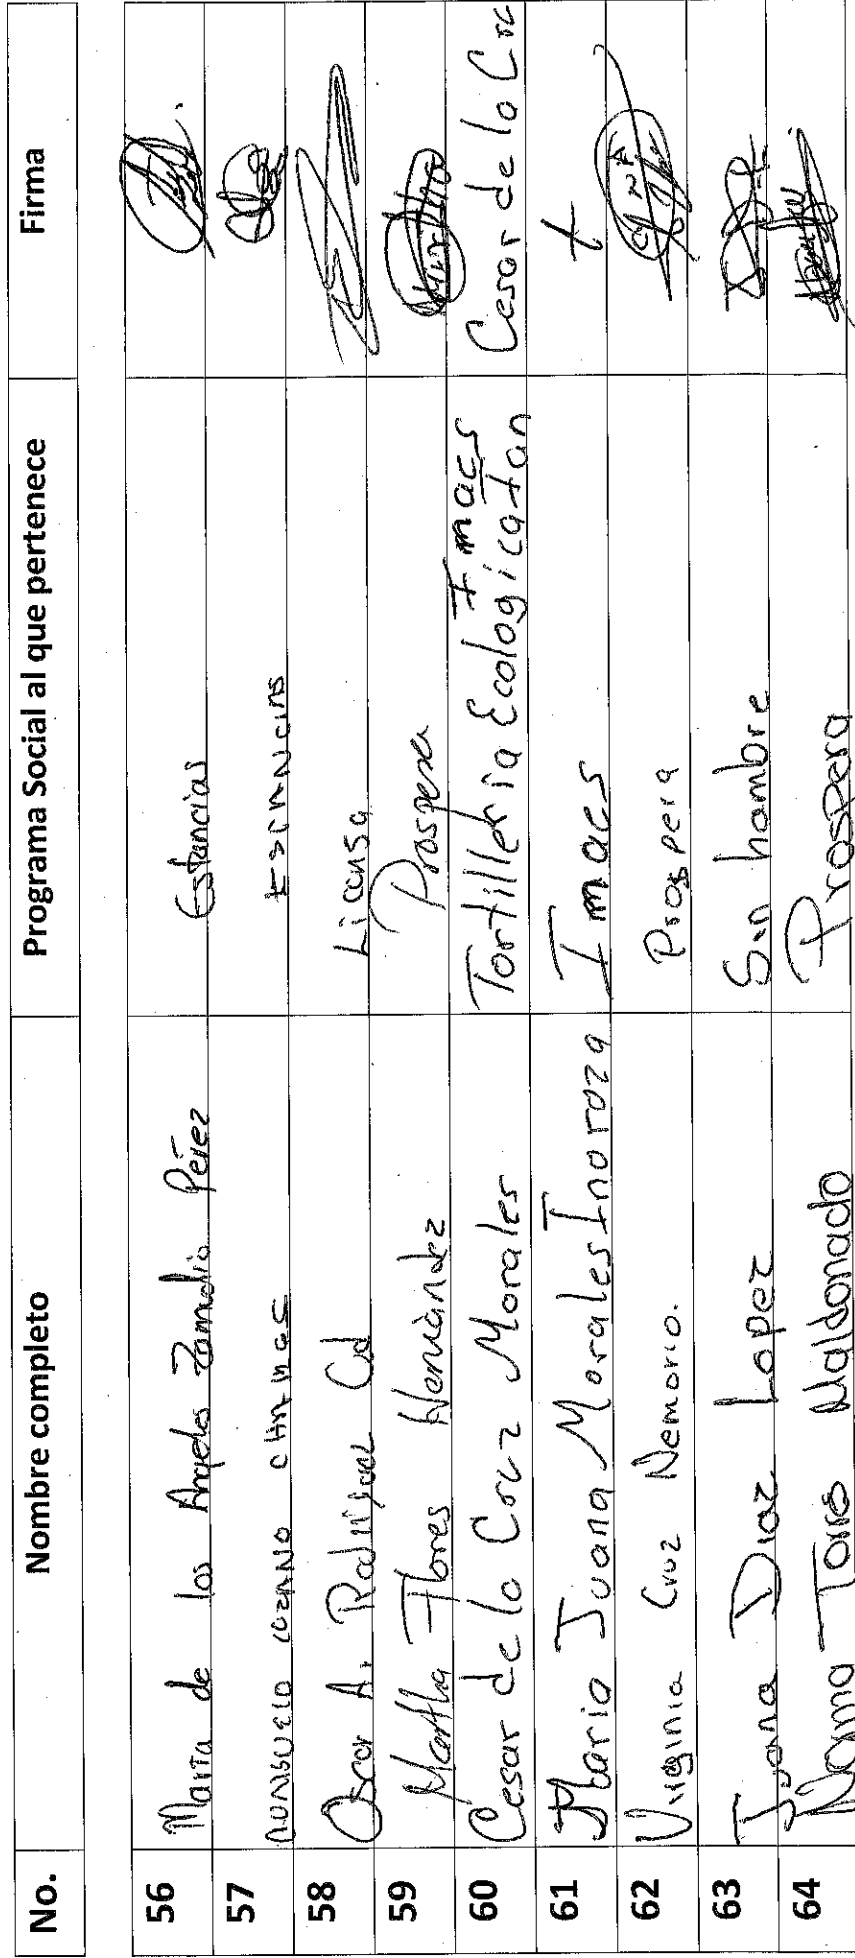 No. Nombre completo Programa Social al que pertenece Firma
56 Maria de los Angeles Zamudio Pérez Estancias
57 Lozano Estancias
58 Oscar A. Rodriguez Cd Liconsa
59 Martha Flores Hernández Prospera Martha
60 Cesar de la Cruz Morales Tortilleria Ecologicatan Imaes Cesar de la Cru
61 Maria Juana Morales Inoroza Imaes +
62 Virginia Cruz Nemorio. Prospera
63 Juana Diaz Lopez Sin hambre
64 Norma Torres Maldonado Prospera